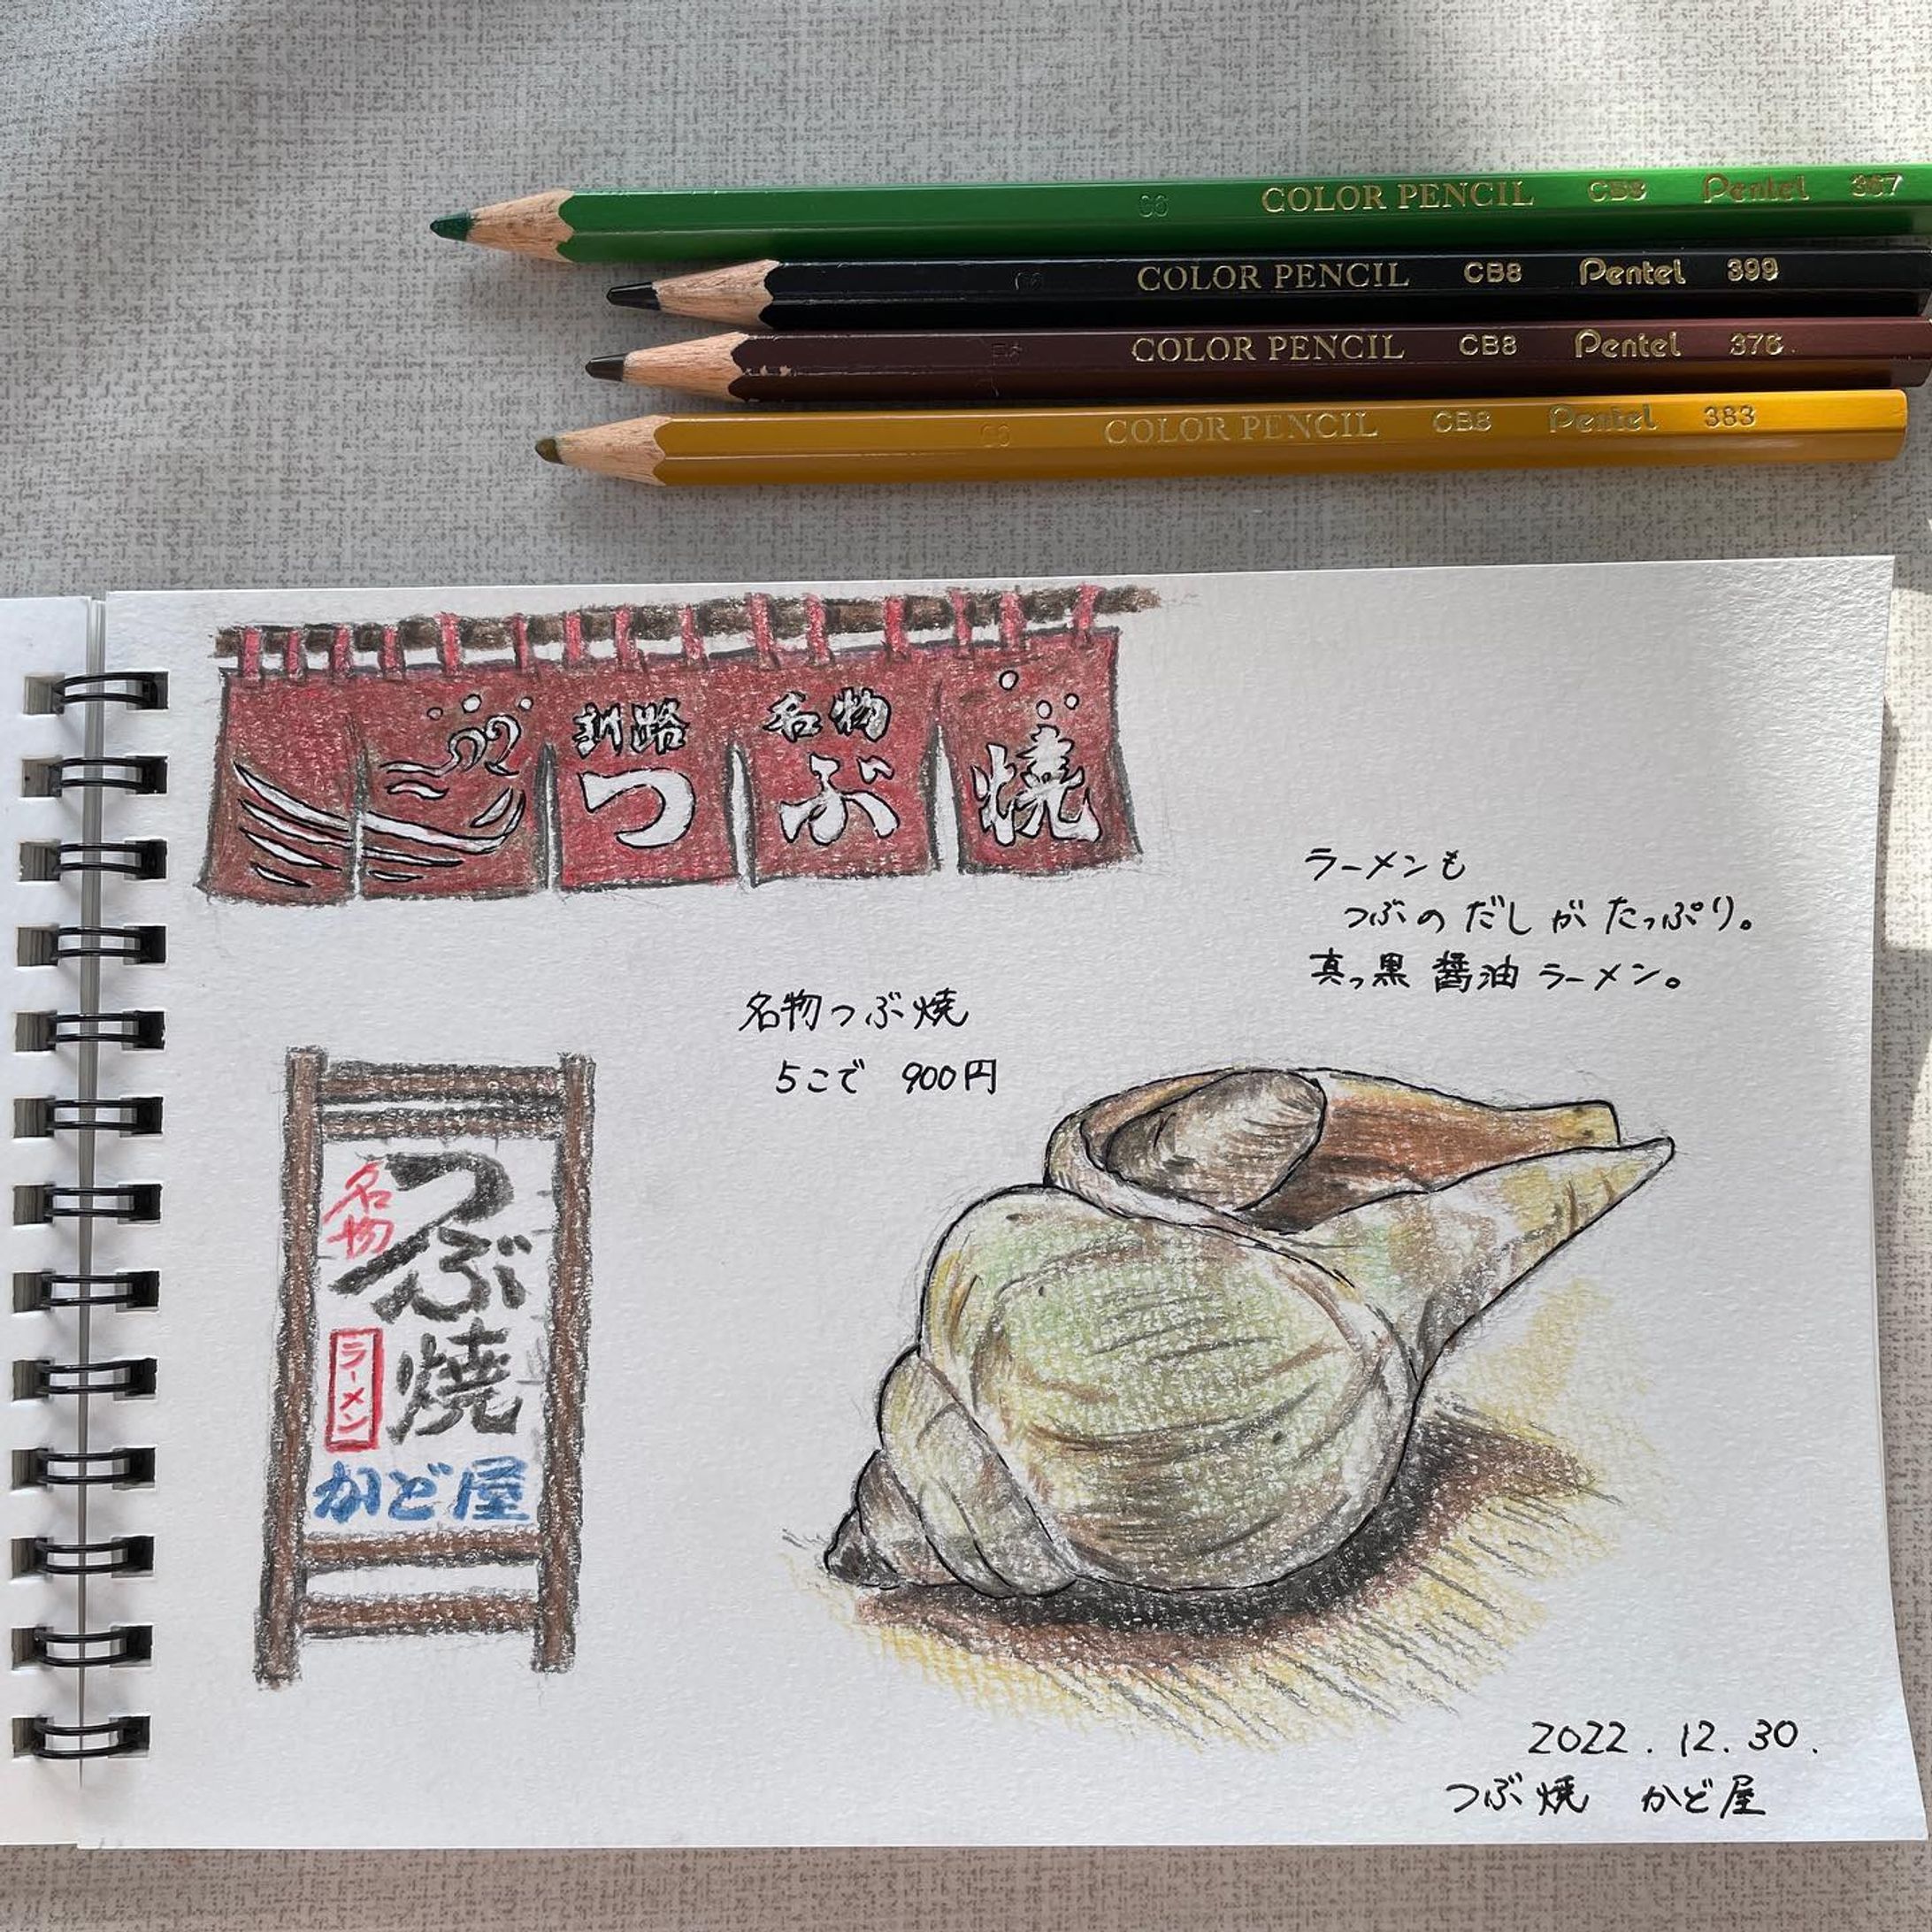 COLOR PENCIL CB8 Pentel 367
COLOR PENCIL CB8 Pentel 399
COLOR PENCIL CB8 Pentel 376
COLOR PENCIL CB8 Pentel 383
釧路 名物
つぶ焼
ラーメンも
つぶのだしがたっぷり。
真っ黒醤油ラーメン。
名物つぶ焼
5こで 900円
名物
つぶ焼
ラーメン
かど屋
2022.12.30.
つぶ焼 かど屋